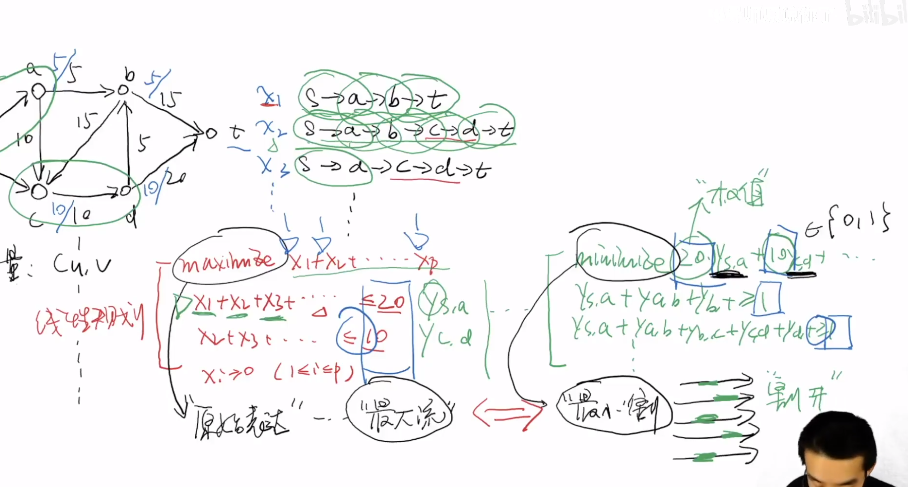 bilibili
a 5/5 b 5/15
10 15 5 t
c 10/10 d 10/20
x1 s→a→b→t
x2 s→a→b→c→d→t
x3 s→a→c→d→t
量: Cu,v
线性规划
maximize x1+x2+ ······ xp
x1+x2+x3+ ······ ≤20 ys,a
x2+x3+ ······ ≤10 yc,d
xi≥0 (1≤i≤p)
"原始表达" ··· "最大流"
"权值"
∈{0,1}
minimize 20·ys,a+10yc,d+ ···
ys,a+ya,b+yb,t≥1
ys,a+ya,b+yb,c+yc,d+yd,t≥1
"最小割"
"割开"